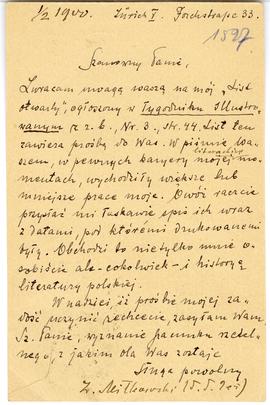 1/2 1900. Zürich V. Forchstrasse 33.
1597
Szanowny Panie,
Zwracam uwagę waszą na mój „List
otwarty”, ogłoszony w Tygodniku Illustro-
wanym z r. b., Nr. 3, str. 44. List ten
zawiera prośbę do Was. W piśmie wa-
szem, w pewnych karyery mojej literackiej mo-
mentach, wychodziły większe lub
mniejsze prace moje. Otóż raczcie
przysłać mi łaskawie spis ich wraz
z datami, pod któremi drukowanemi
były. Obchodzi to nietylko mnie o-
sobiście ale - cokolwiek - i historyę
literatury polskiej.
W nadziei, iż prośbie mojej za-
dość uczynić zechcecie, zasyłam Wam
Sz. Panie, wyznanie szacunku rzetel-
nego, z jakim dla Was zostaję
Sługa powolny
Z. Miłkowski (T. T. Jeż)